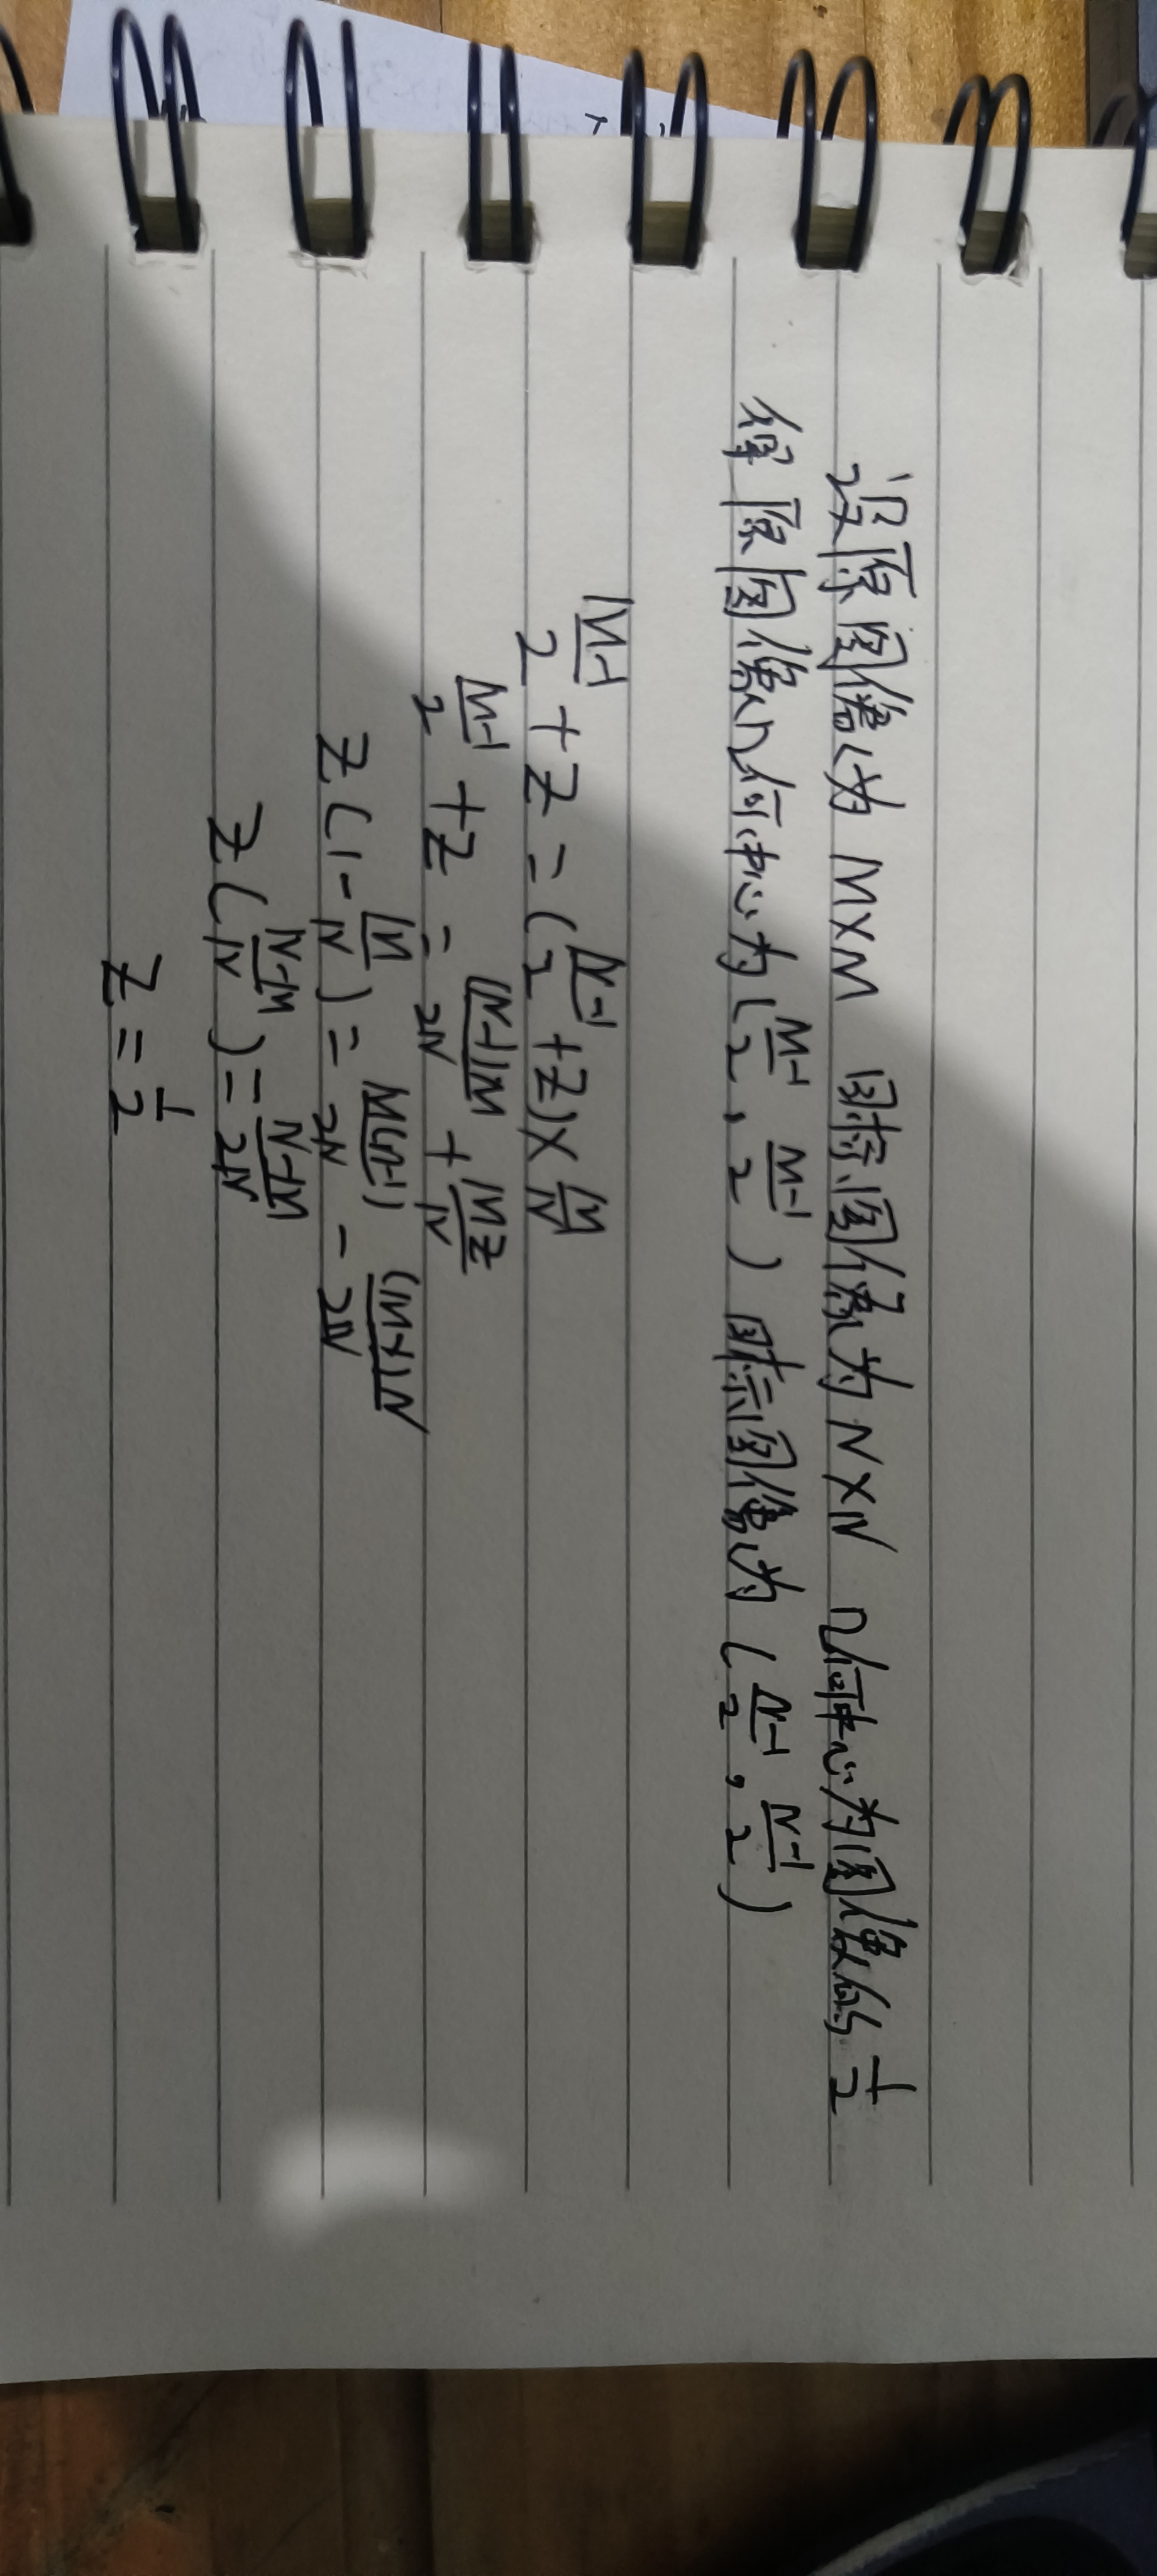 设原图像为 M×M 目标图像为 N×N 几何中心为图像的 1/2
得原图像几何中心为 ( (M-1)/2 , (M-1)/2 ) 目标图像为 ( (N-1)/2 , (N-1)/2 )
(M-1)/2 + Z = ( (N-1)/2 + Z) × M/N
(M-1)/2 + Z = (N-1)M/2N + MZ/N
Z(1 - M/N) = M(N-1)/2N - (M-1)N/2N
Z( (N-M)/N ) = (N-M)/2N
Z = 1/2